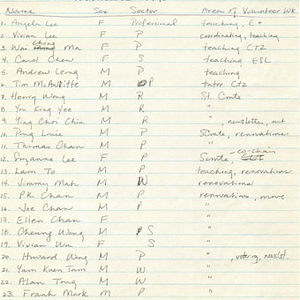 Name Sex Sector Area of Volunteer Wk
1. Angela Lee F Professional teaching, E+
2. Vivian Lee F P coordinating, teaching
3. Wai Ching Ma F P teaching CTZ
4. Carol Chew F S teaching ESL
5. Andrew Leong M P teaching
6. Tim McAuliffe M P tutor CTZ
7. Henry Wong M R St. Cmte
8. Yu King Yee M R "
9. Ying Choi Chin M R " , newsletter, art
10. Ping Louie M P SCmte, renovations
11. Thomas Chan M P "
12. Suzanne Lee F P Scmte, co-chair
13. Lam To M P teaching, renovations
14. Jimmy Mah M W renovations
15. PK Chan M P renovations, move
16. Joe Chan M P "
17. Ellen Chan F "
18. Cheung Wong M S "
19. Vivian Wu F S "
20. Howard Wong M P " , voting, assist.
21. Yam Kuen Tam M W "
22. Alan Tong M W "
23. Frank Mark M P "